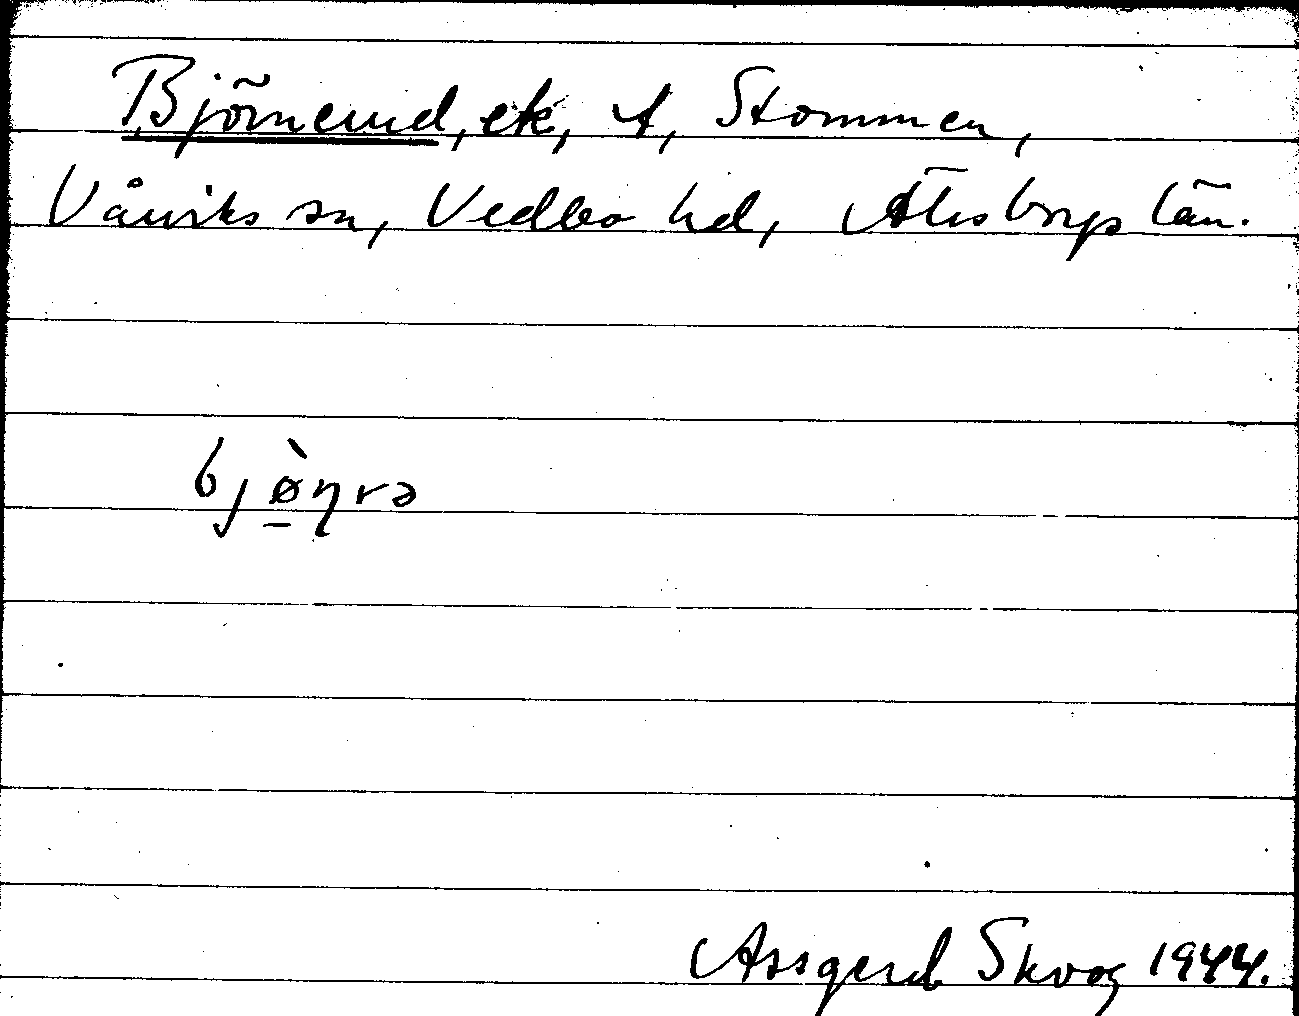 Björnerud, ek, t, Stommen,
Vårviks sn, Vedbo hd, Älvsborgs län.
bjø̱̀ɳrə
Assgerd Skoog 1944.